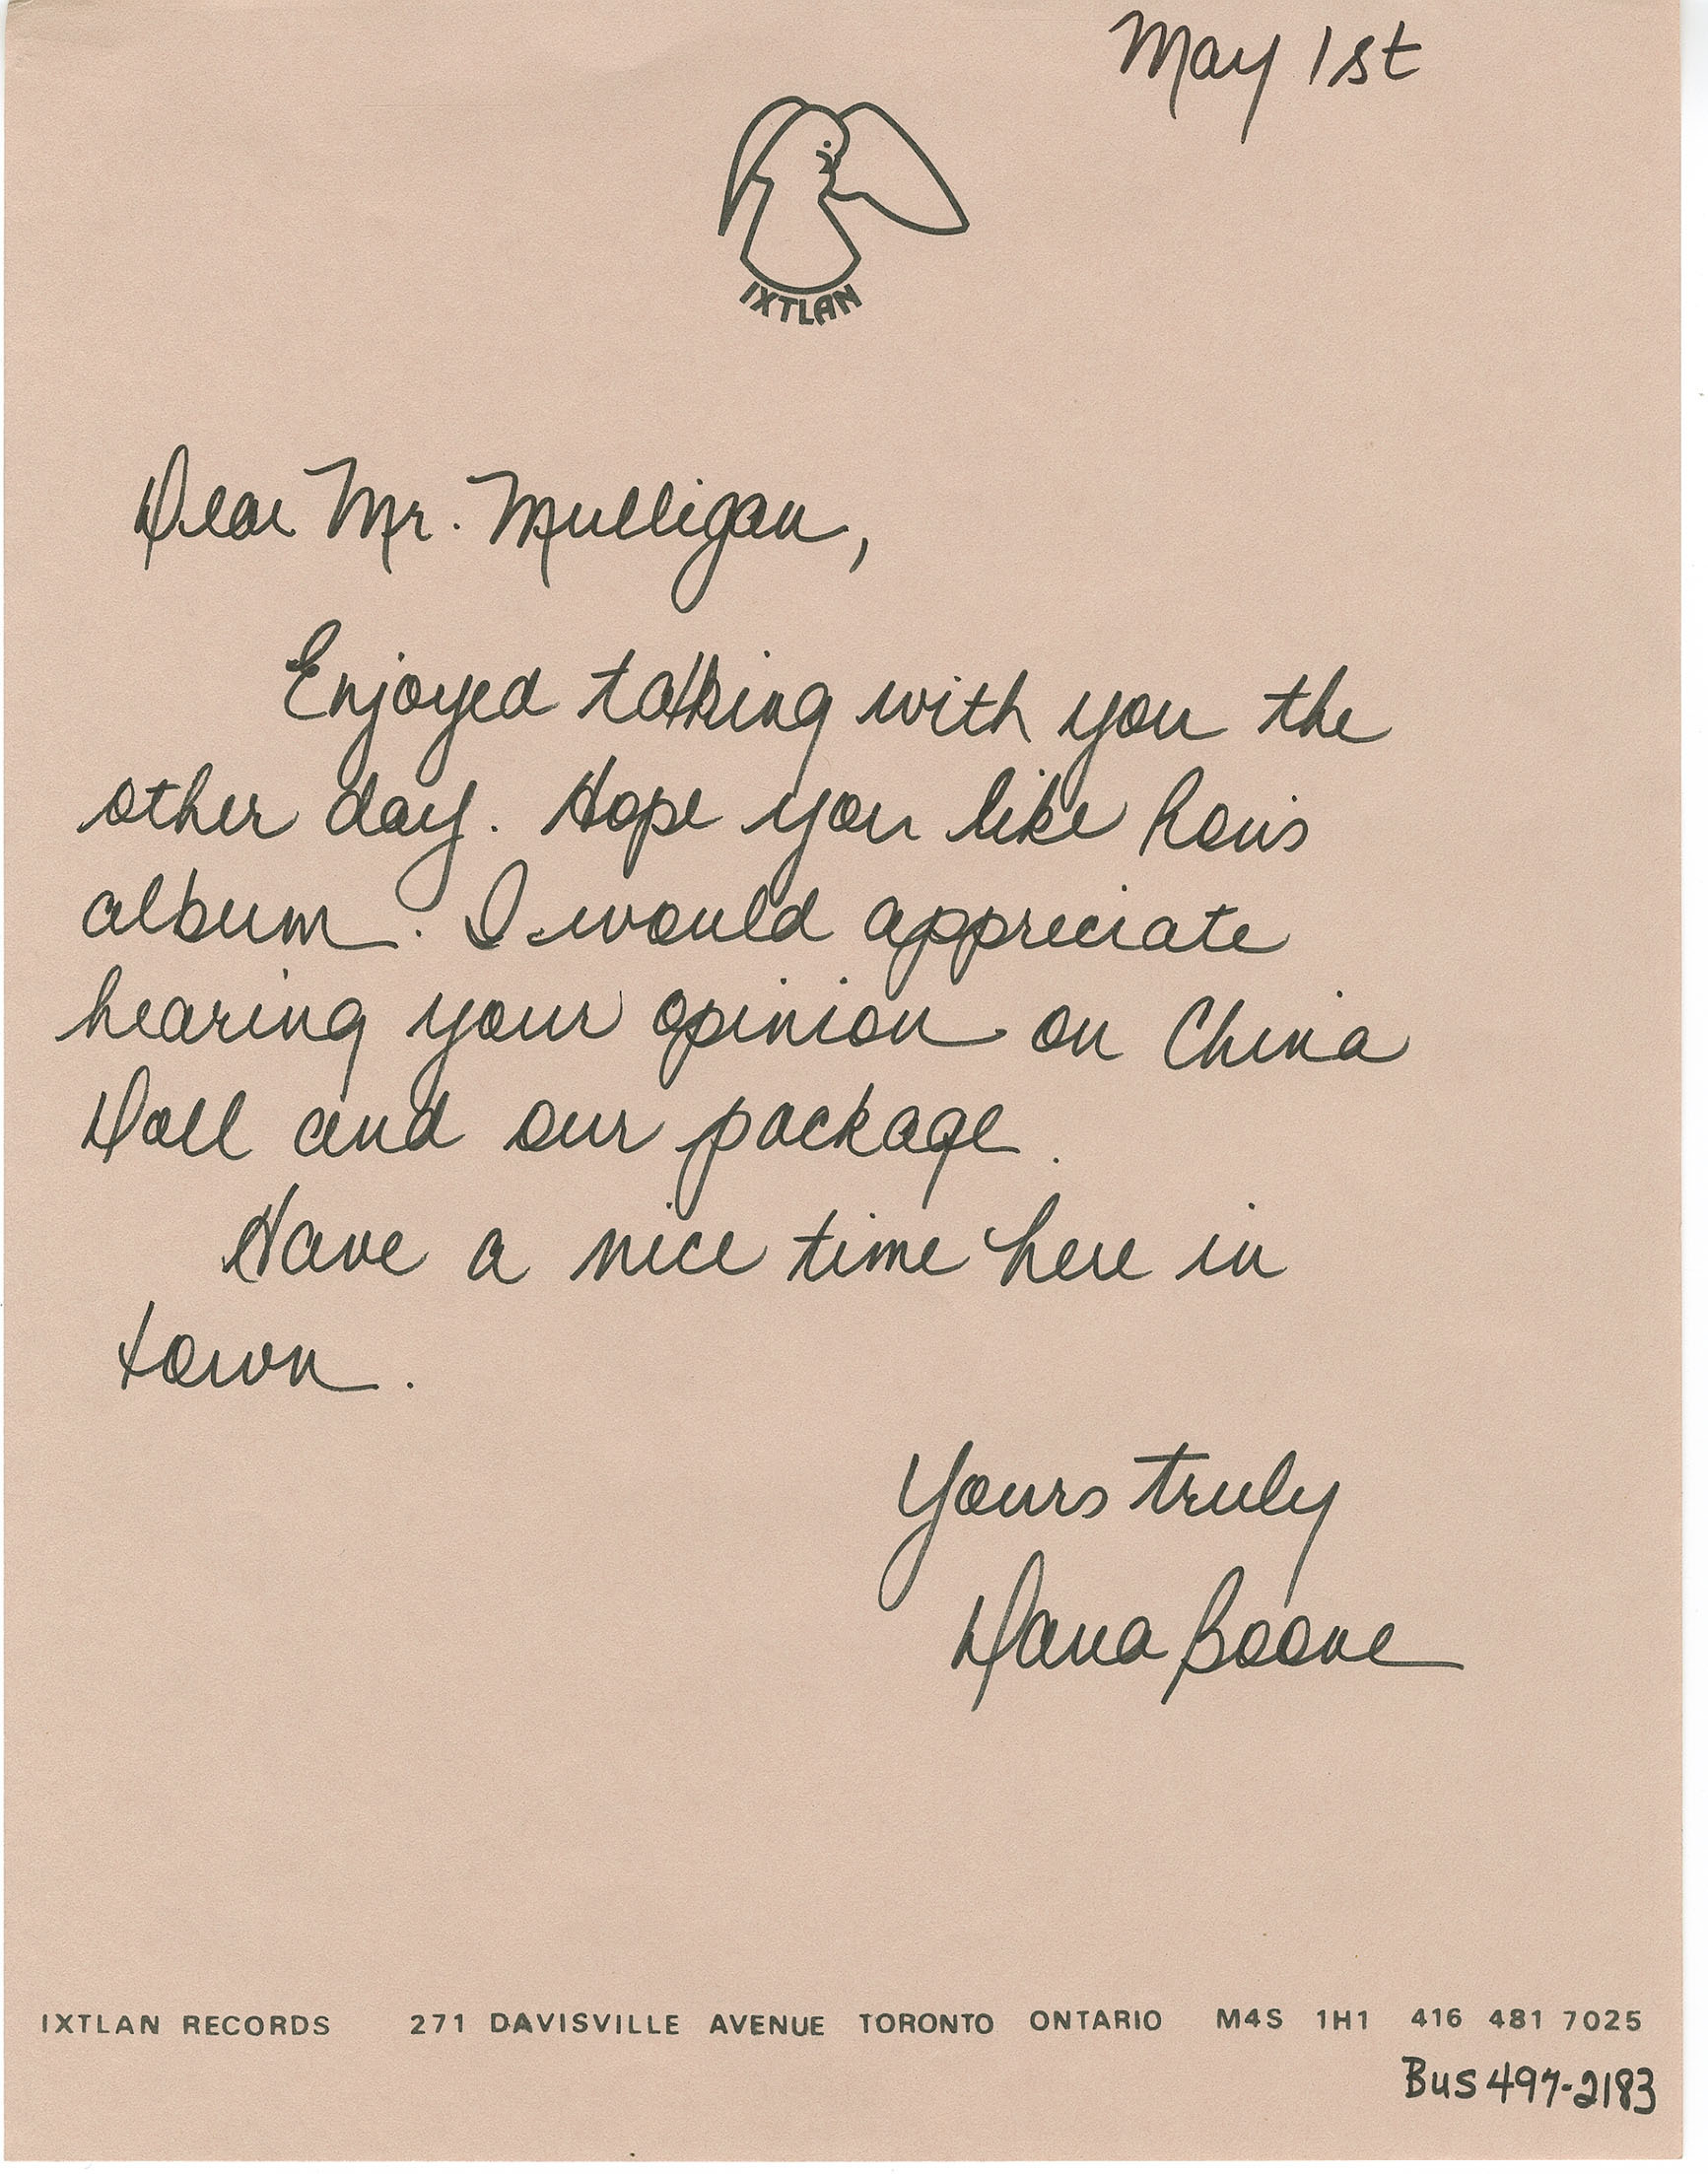 May 1st
IXTLAN
Dear Mr. Mulligan,
Enjoyed talking with you the
other day. Hope you like Ron's
album. I would appreciate
hearing your opinion on China
Doll and our package.
Have a nice time here in
town.
Yours truly
Dana Boone
IXTLAN RECORDS 271 DAVISVILLE AVENUE TORONTO ONTARIO M4S 1H1 416 481 7025
Bus 497-2183